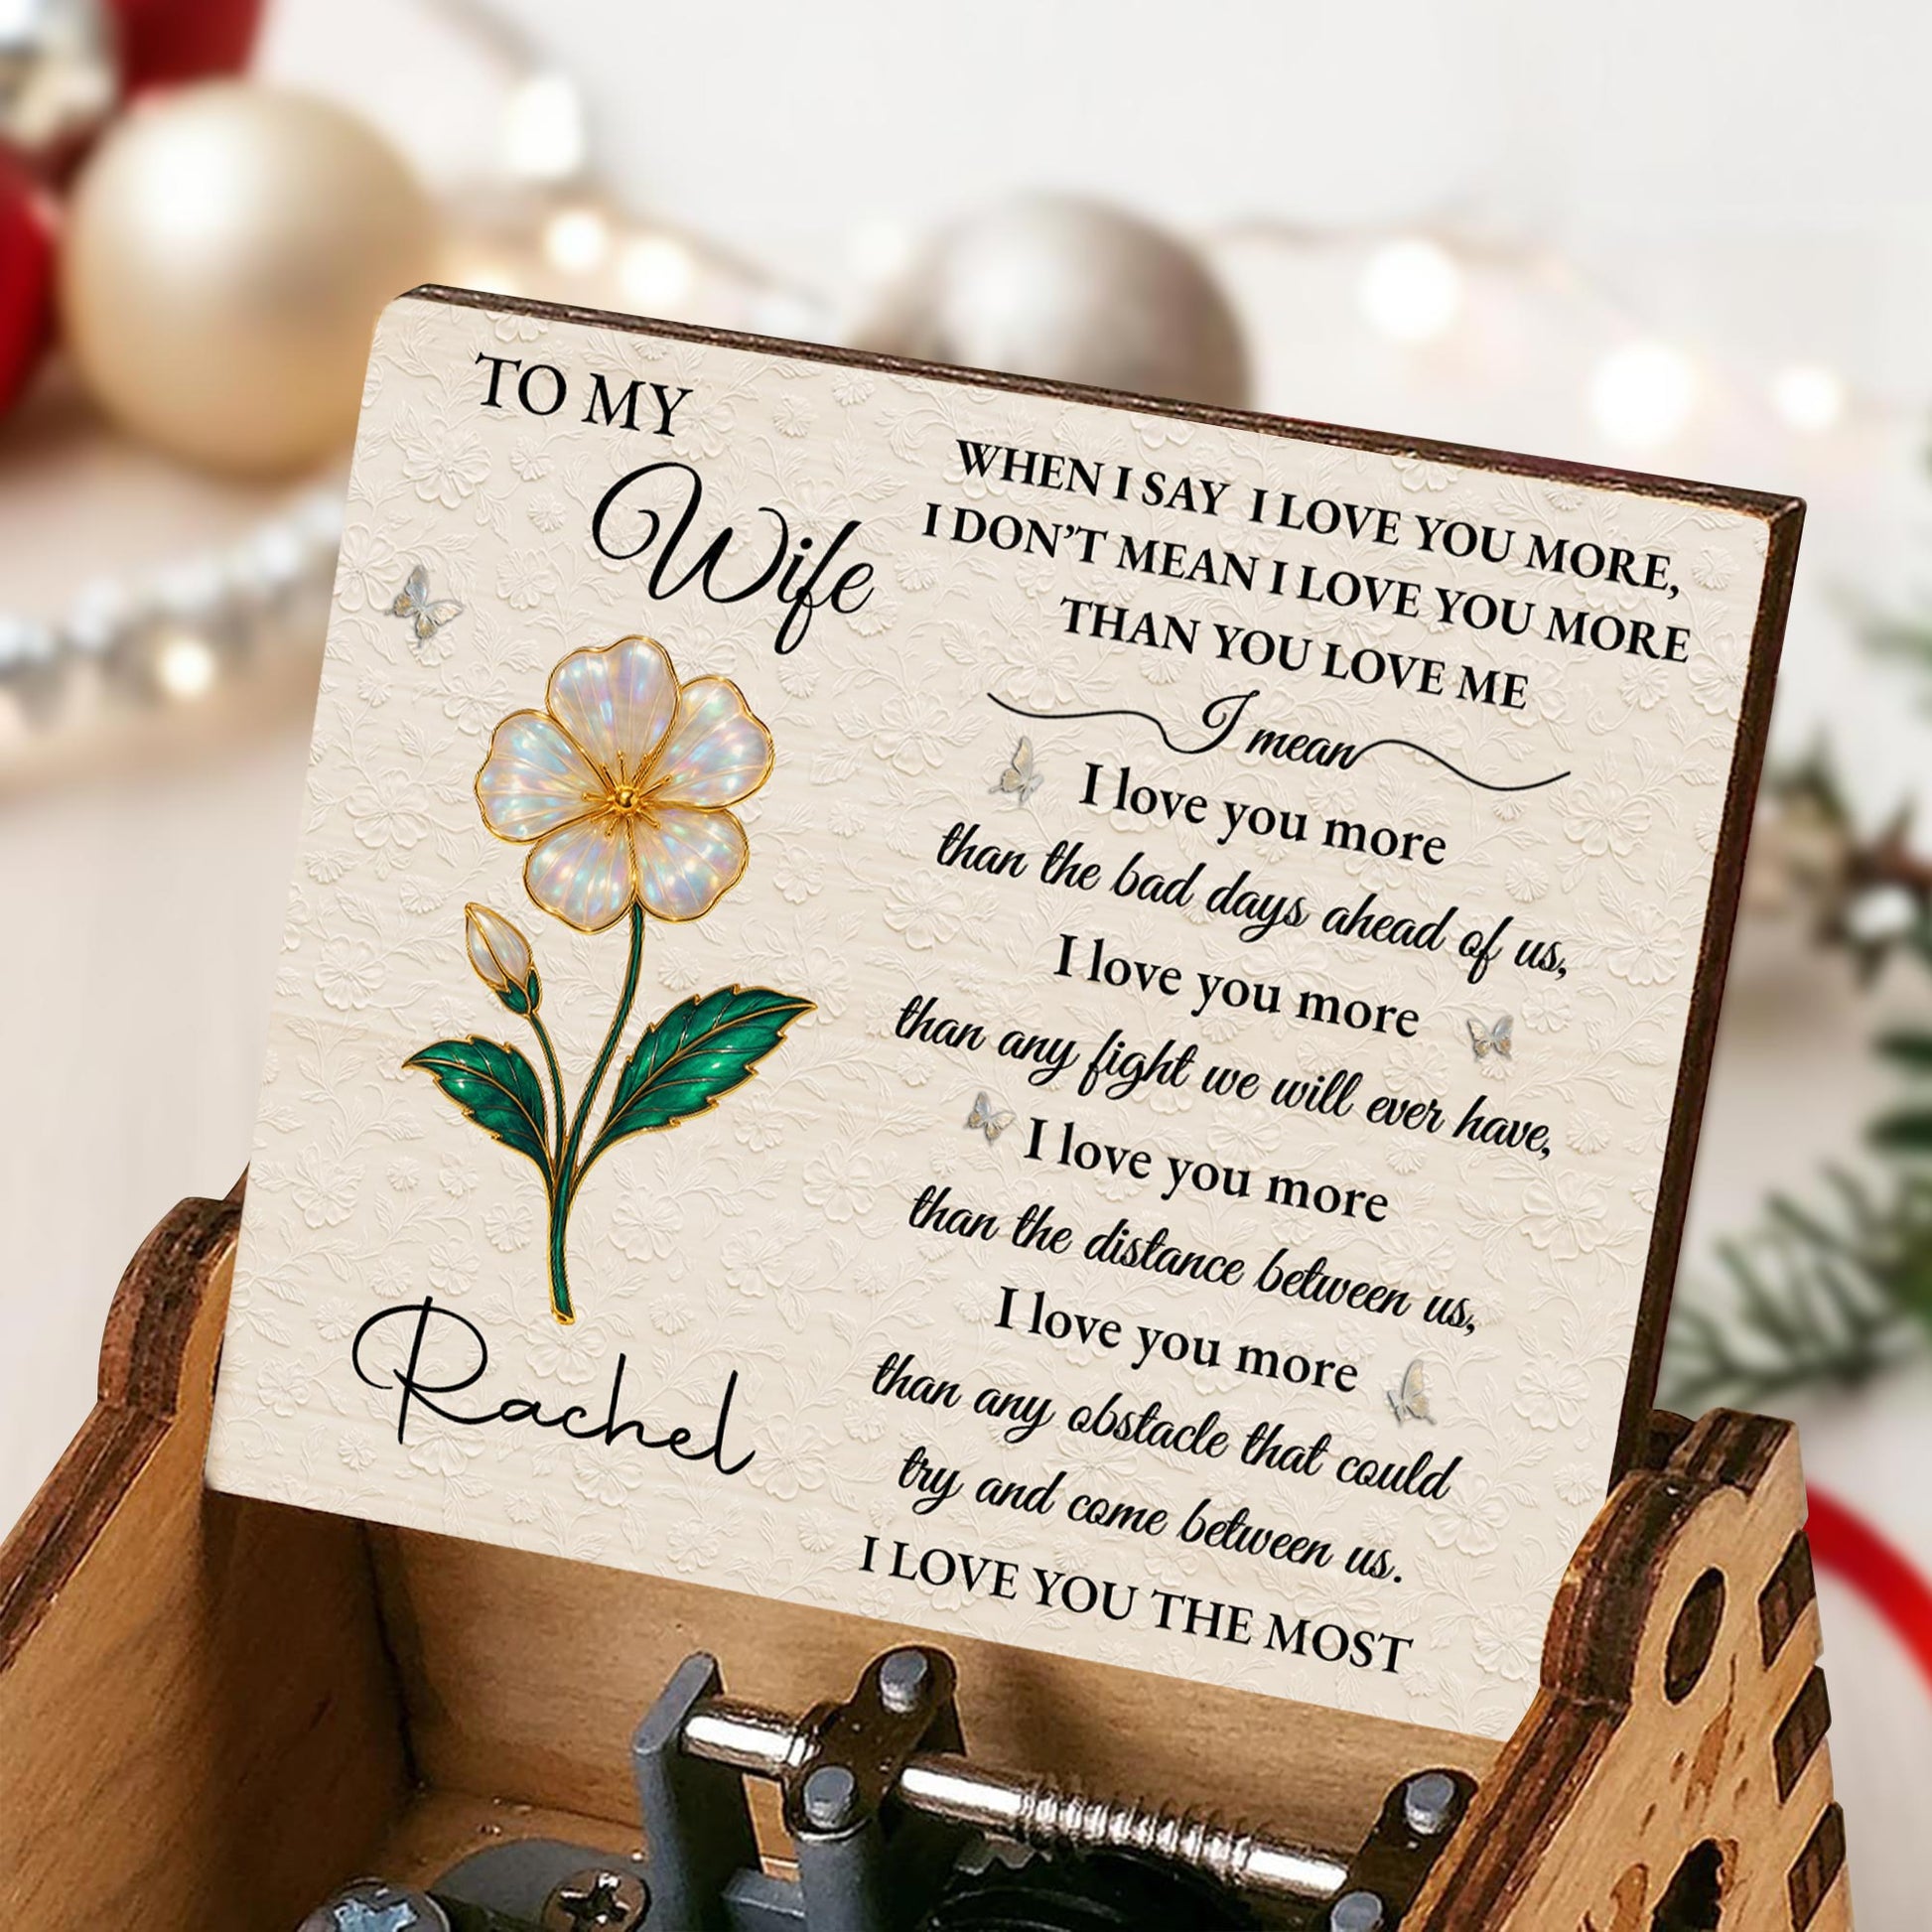 TO MY
Wife
Rachel
WHEN I SAY I LOVE YOU MORE,
I DON'T MEAN I LOVE YOU MORE
THAN YOU LOVE ME
I mean
I love you more
than the bad days ahead of us,
I love you more
than any fight we will ever have,
I love you more
than the distance between us,
I love you more
than any obstacle that could
try and come between us.
I LOVE YOU THE MOST